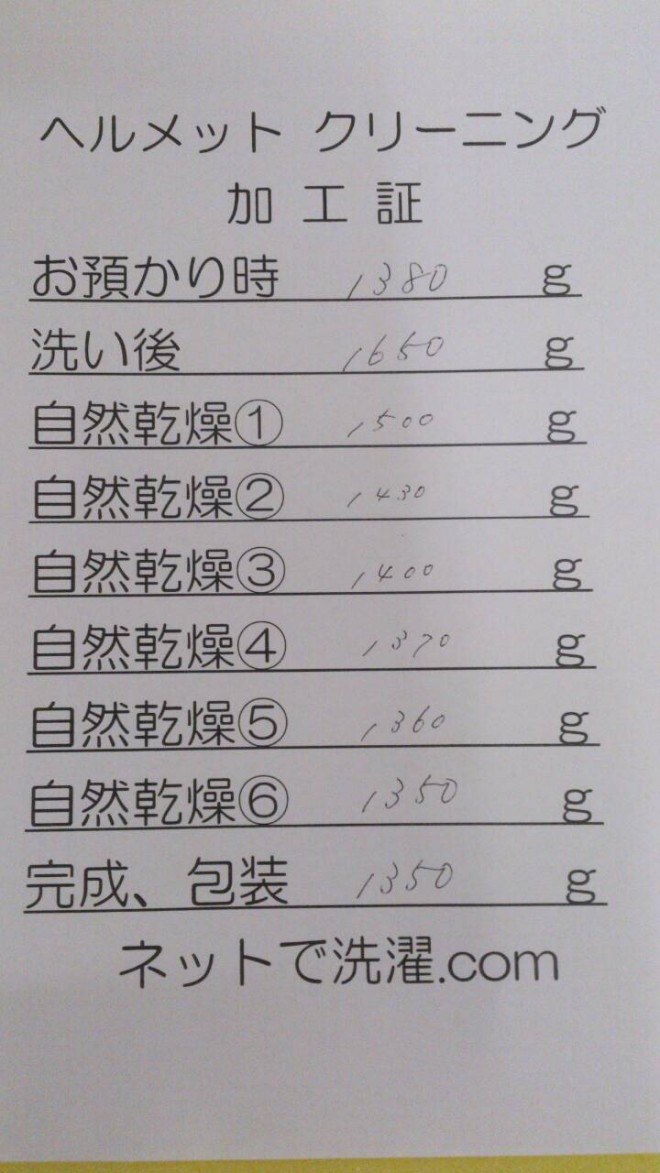 ヘルメット クリーニング
加 工 証
お預かり時 1380 g
洗い後 1650 g
自然乾燥① 1500 g
自然乾燥② 1430 g
自然乾燥③ 1400 g
自然乾燥④ 1370 g
自然乾燥⑤ 1360 g
自然乾燥⑥ 1350 g
完成、包装 1350 g
ネットで洗濯.com